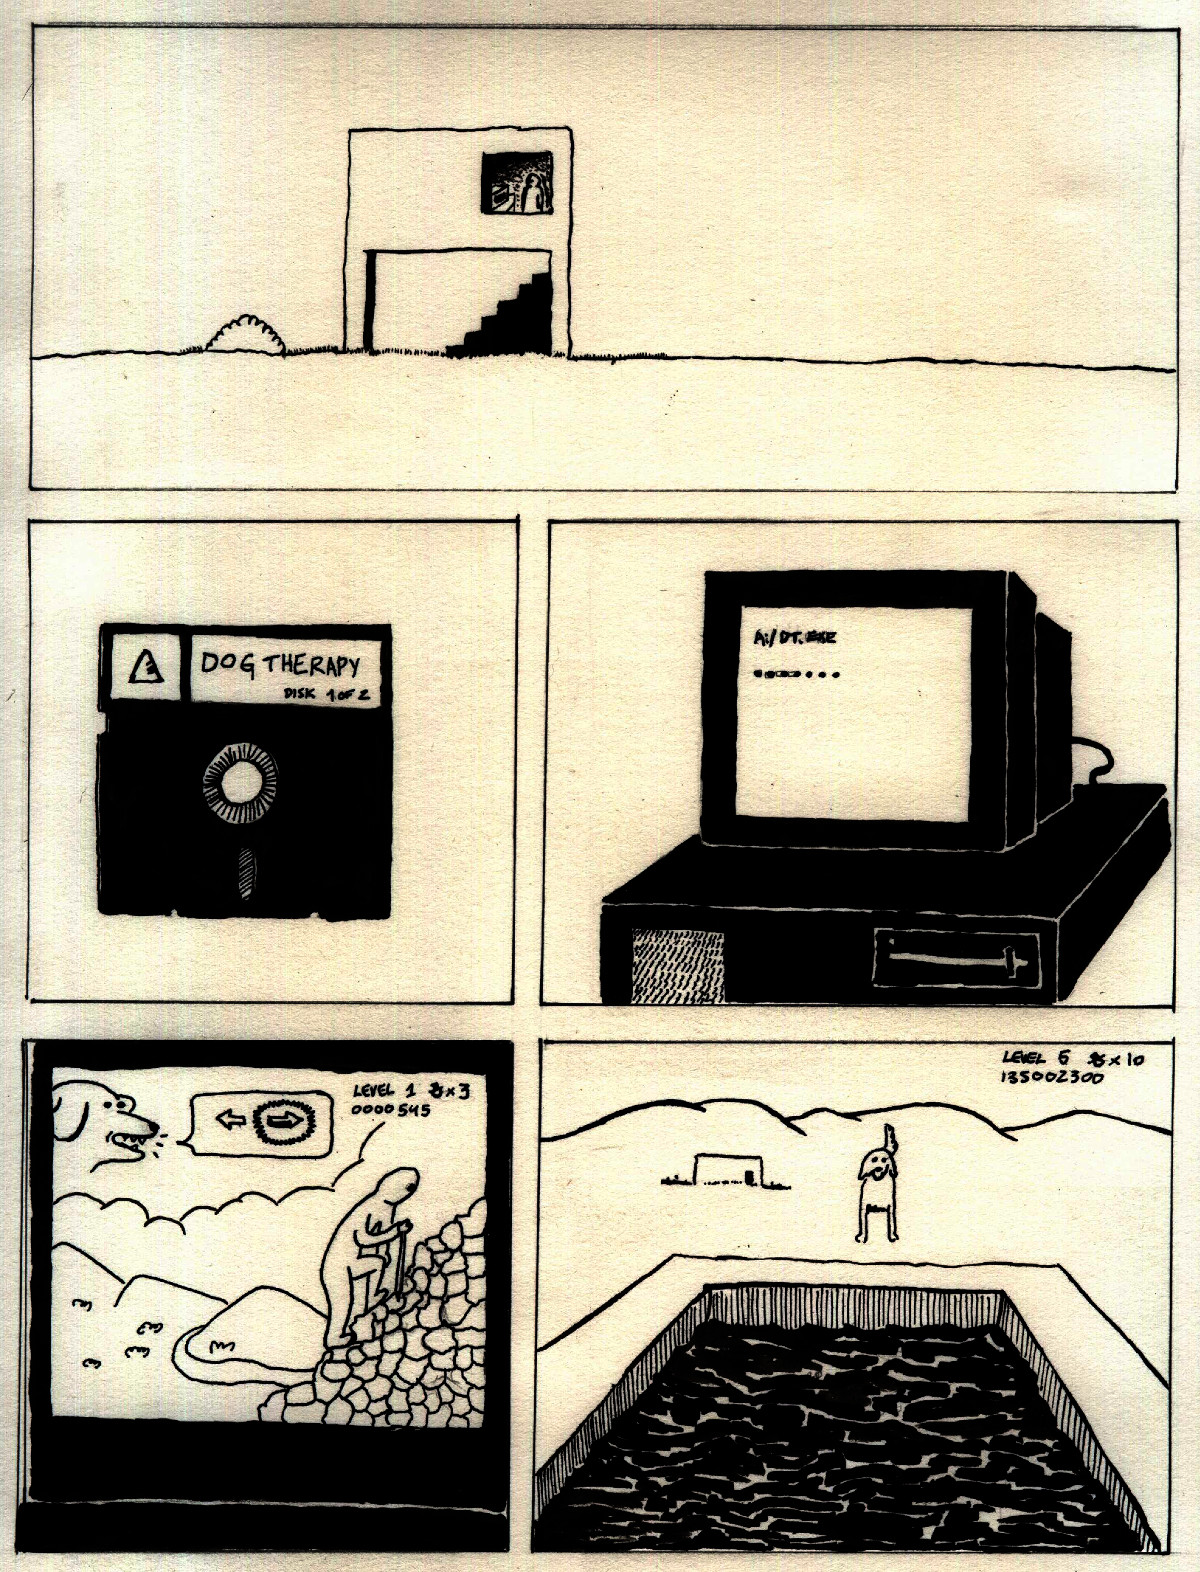 DOG THERAPY
DISK 1 OF 2
A:/DT.EXE
LEVEL 1 x3
0000545
LEVEL 6 x10
135002300